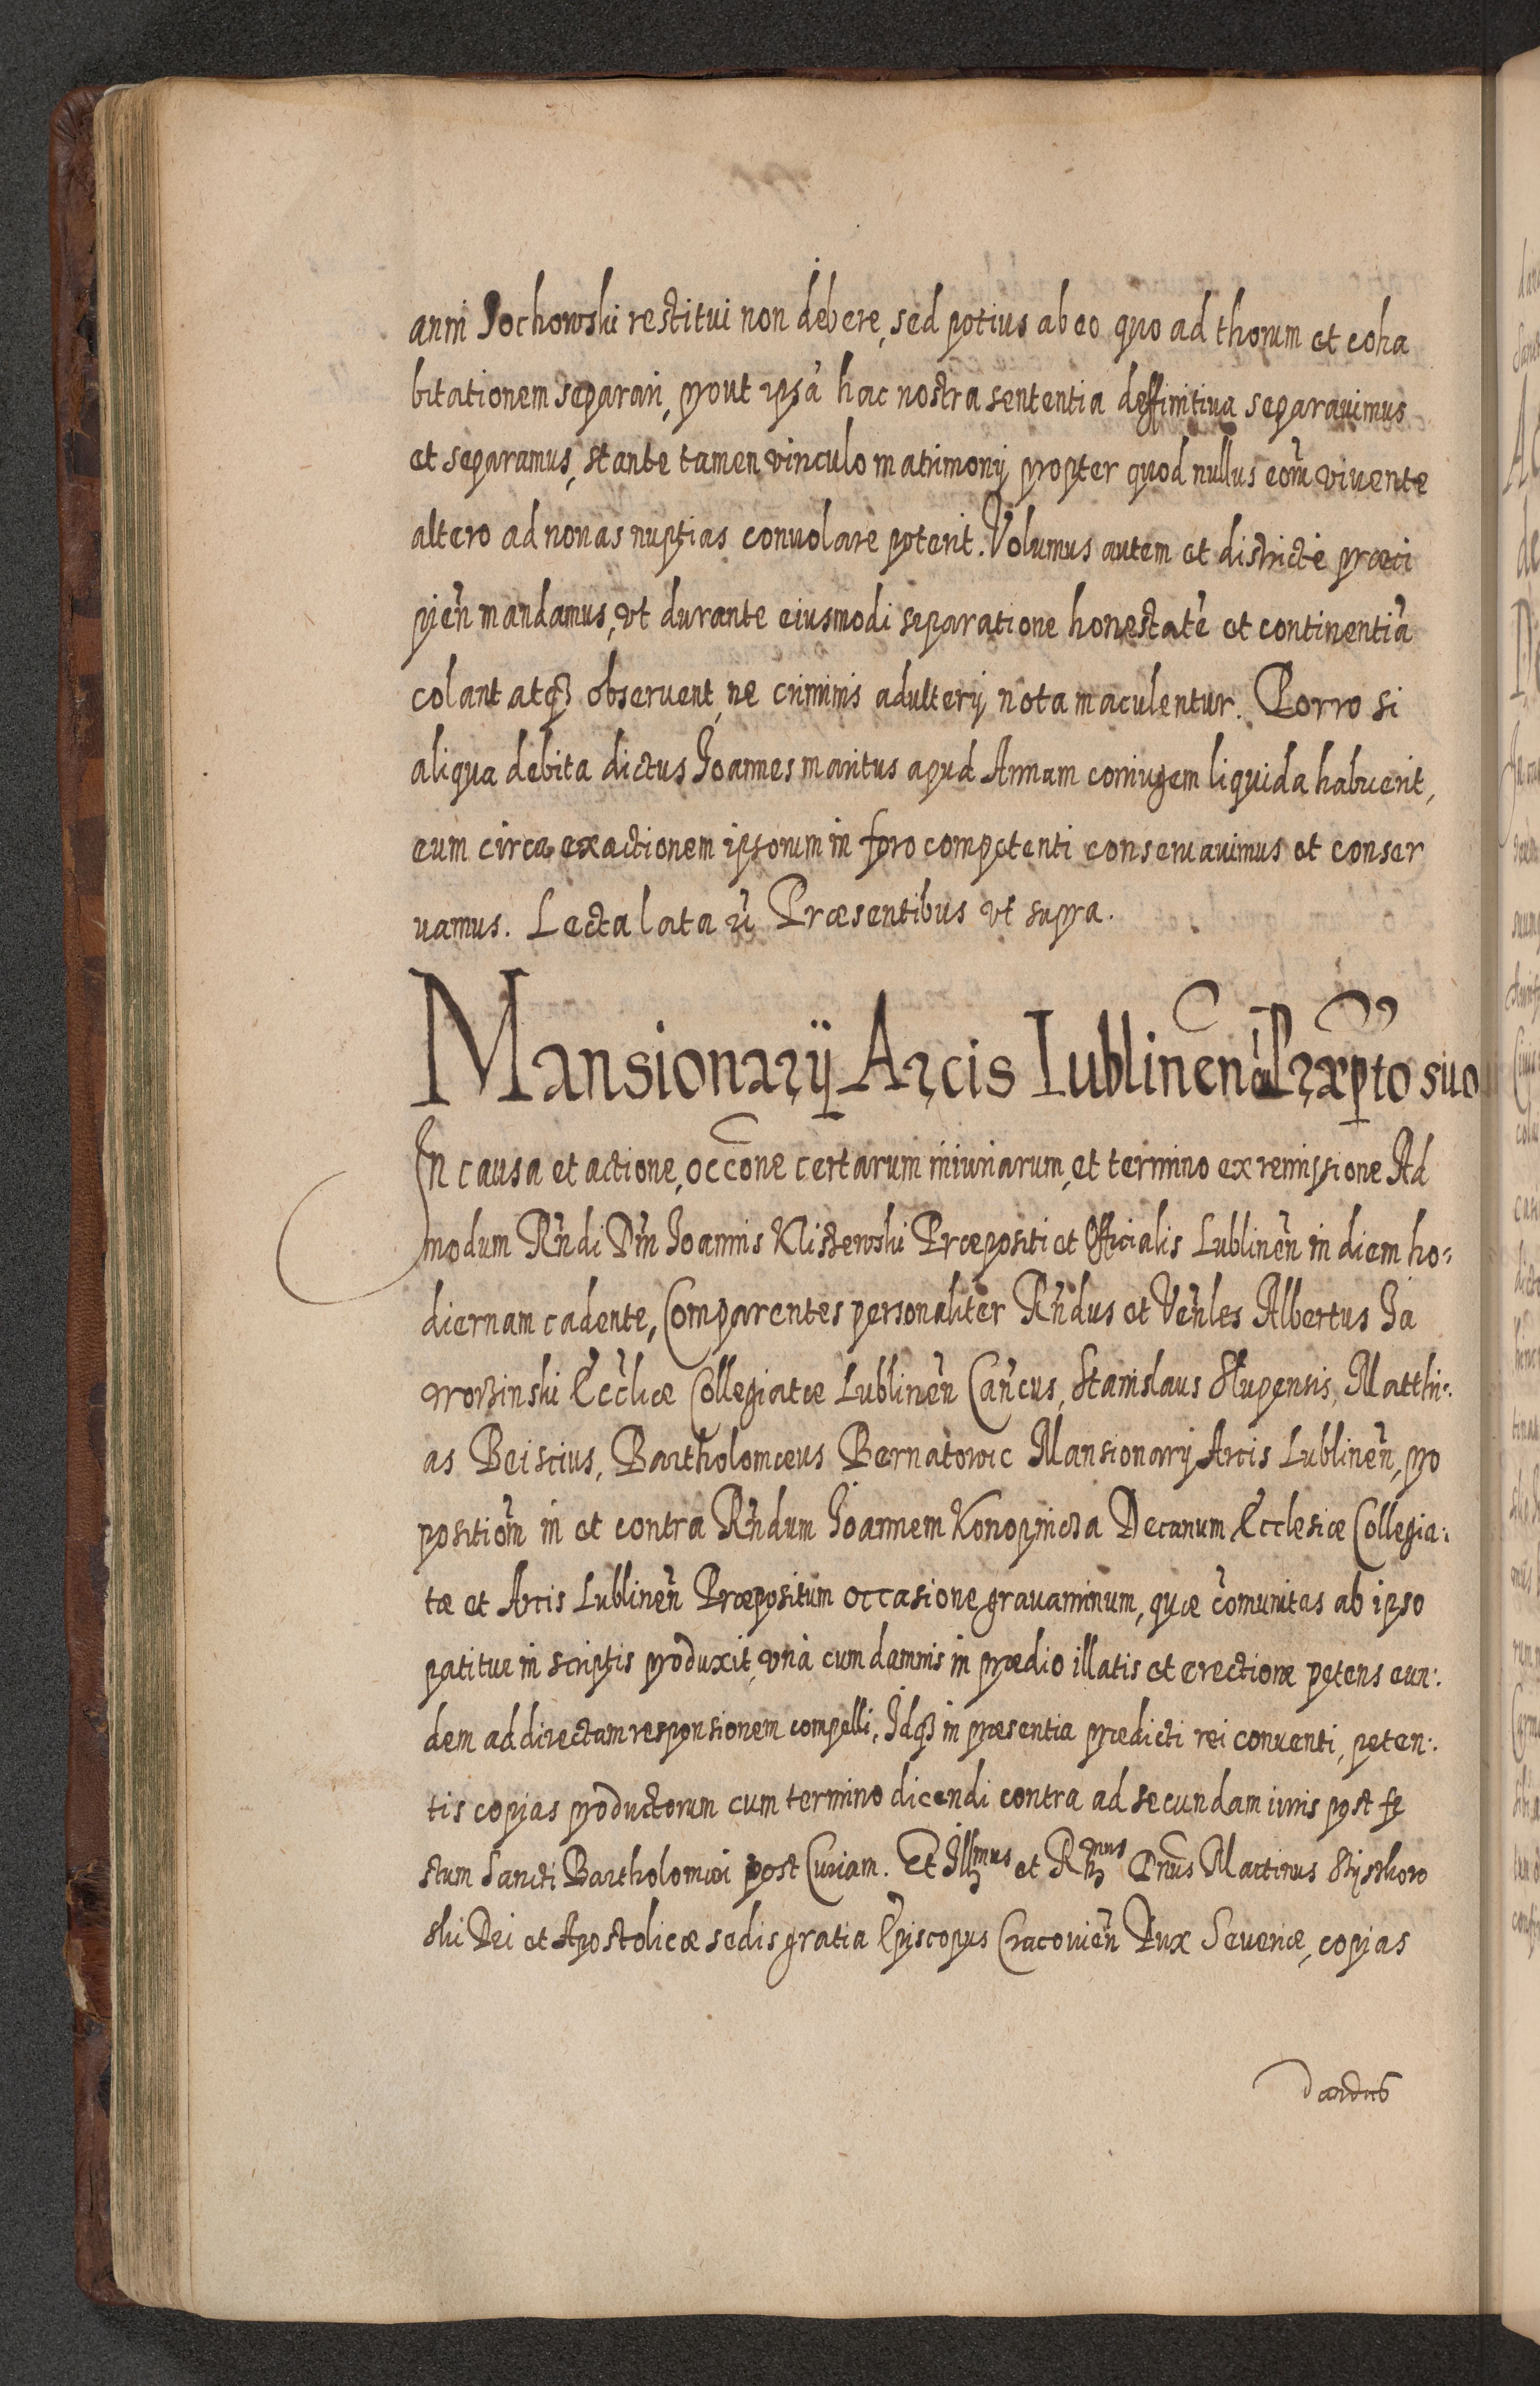 anni Jochowski restitui non debere, sed potius ab eo quo ad thorum et coha
bitationem separari, prout ipsã hac nostra sententia deffinitiua separauimus
et separamus, stante tamen vinculo matrimonij propter quod nullus eorũ viuente
altero ad nouas nuptias conuolare poterit. Volumus autem et districtè præci
pieñ mandamus, vt durante eiusmodi separatione honestatẽ et continentiã
colant atqȝ obseruent, ne criminis adulterij nota maculentur. Porro si
aliqua debita dictus Joannes maritus apud Annam coniugem liquida habuerit,
eum circa exactionem ipsorum in foro competenti conseruauimus et conser
uamus. Lecta lata Præsentibus vt supra.
Mansionarij Arcis Lublineñ Præpto suo
In causa et actione, occõne certarum iniuriarum, et termino ex remissione Ad
modum Rñdi Dñi Joannis Klistewski Præpositi et Officialis Lublineñ in diem ho:
diernam cadente, Comparentes personaliter Rñdus et Veñles Albertus Ja
woßinski Ecc̃liæ Collegiatæ Lublineñ Cañcus, Stanislaus Slupensis, Matthi:
as Beiscius, Bartholomæus Bernatowic Mansionarij Arcis Lublineñ, pro
positioñ in et contra Rñdum Joannem Konopnicza Decanum Ecclesiæ Collegia:
tæ et Arcis Lublineñ Præpositum occasione grauaminum, quæ cõmunitas ab ipso
patitur in scriptis produxit, vnà cum damnis in prædio illatis et erectione petens eun:
dem ad directam responsionem compelli, Idqȝ in præsentia prædicti rei conuenti, peten:
tis copias productorum cum termino dicendi contra ad secundam iuris post fe
stum Sancti Bartholomæi post Curiam. Et Illmus et Rmus Dnus Martinus Szyszkow
ski Dei et Apostolicæ sedis gratia Episcopus Cracouieñ Dux Seueriæ, copias
dandas